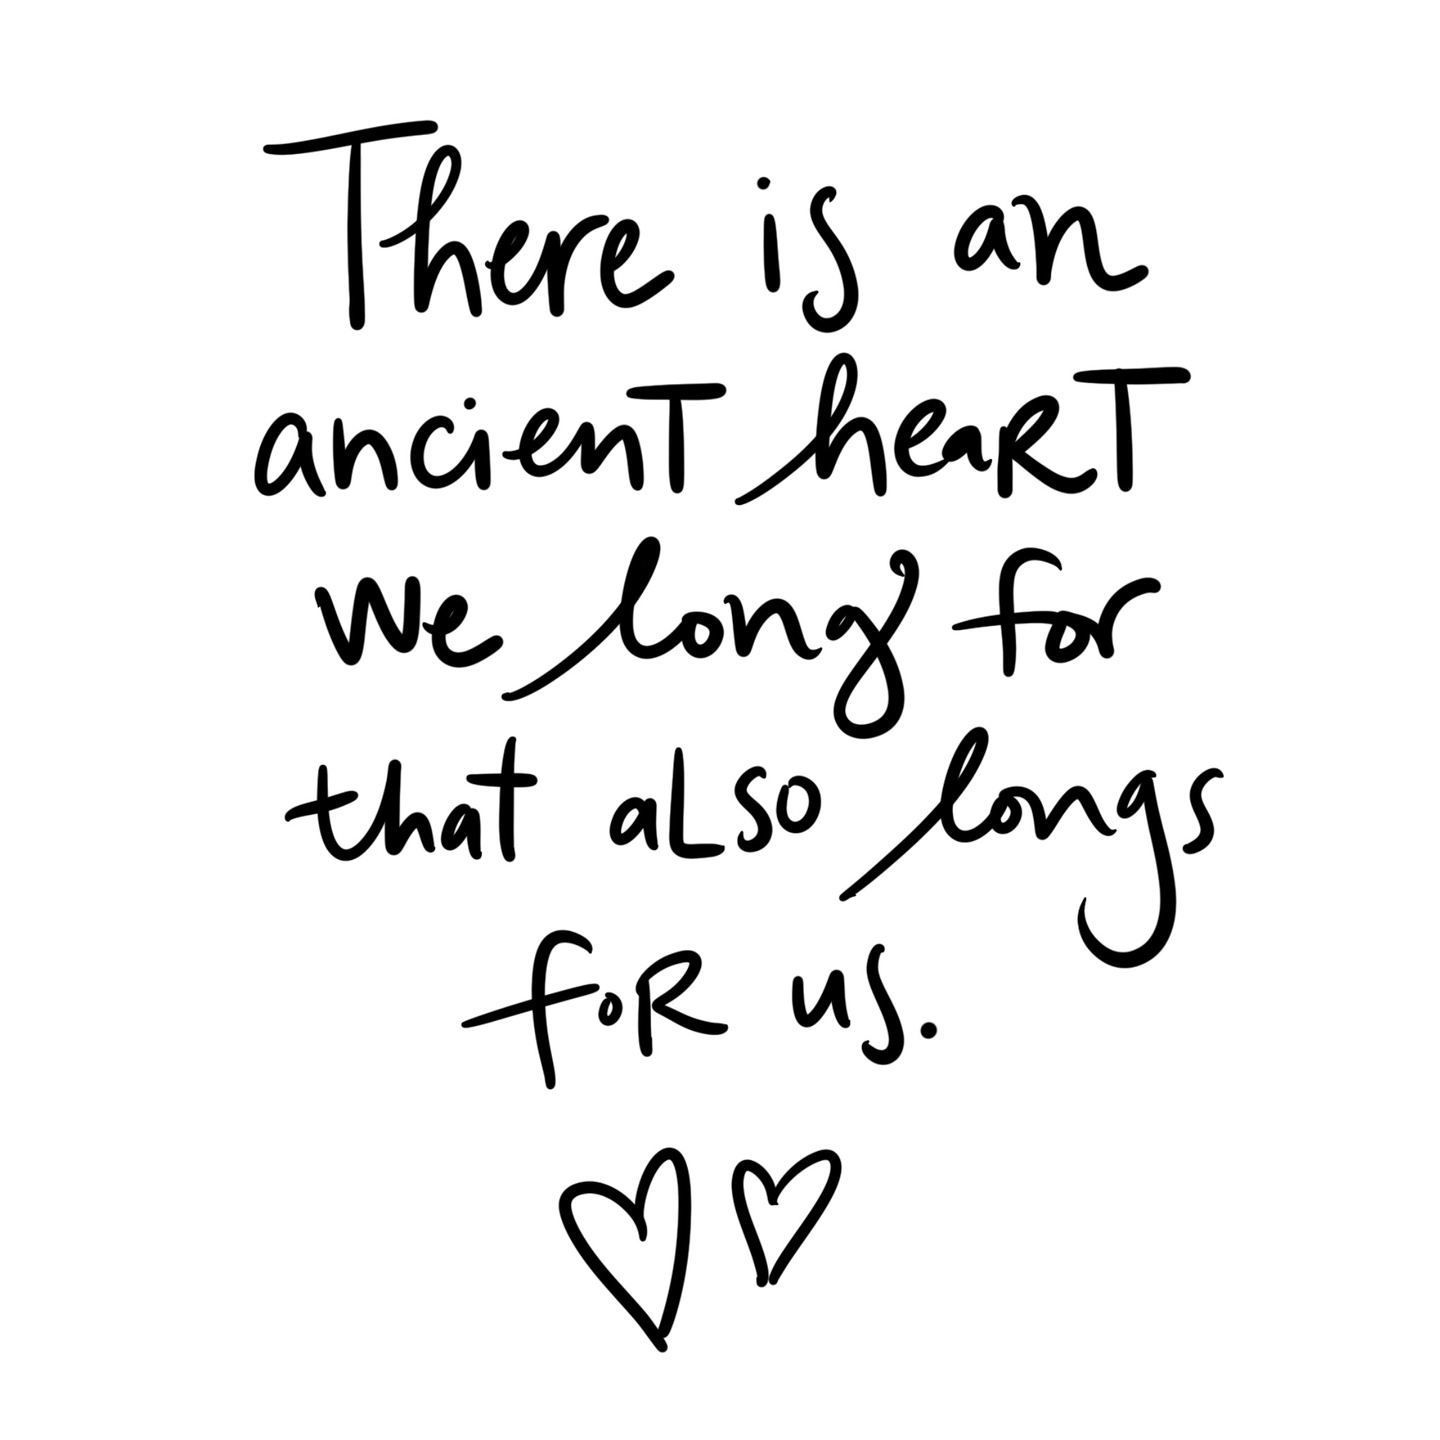 There is an
ancienT heaRT
we long for
that aLso longs
foR us.